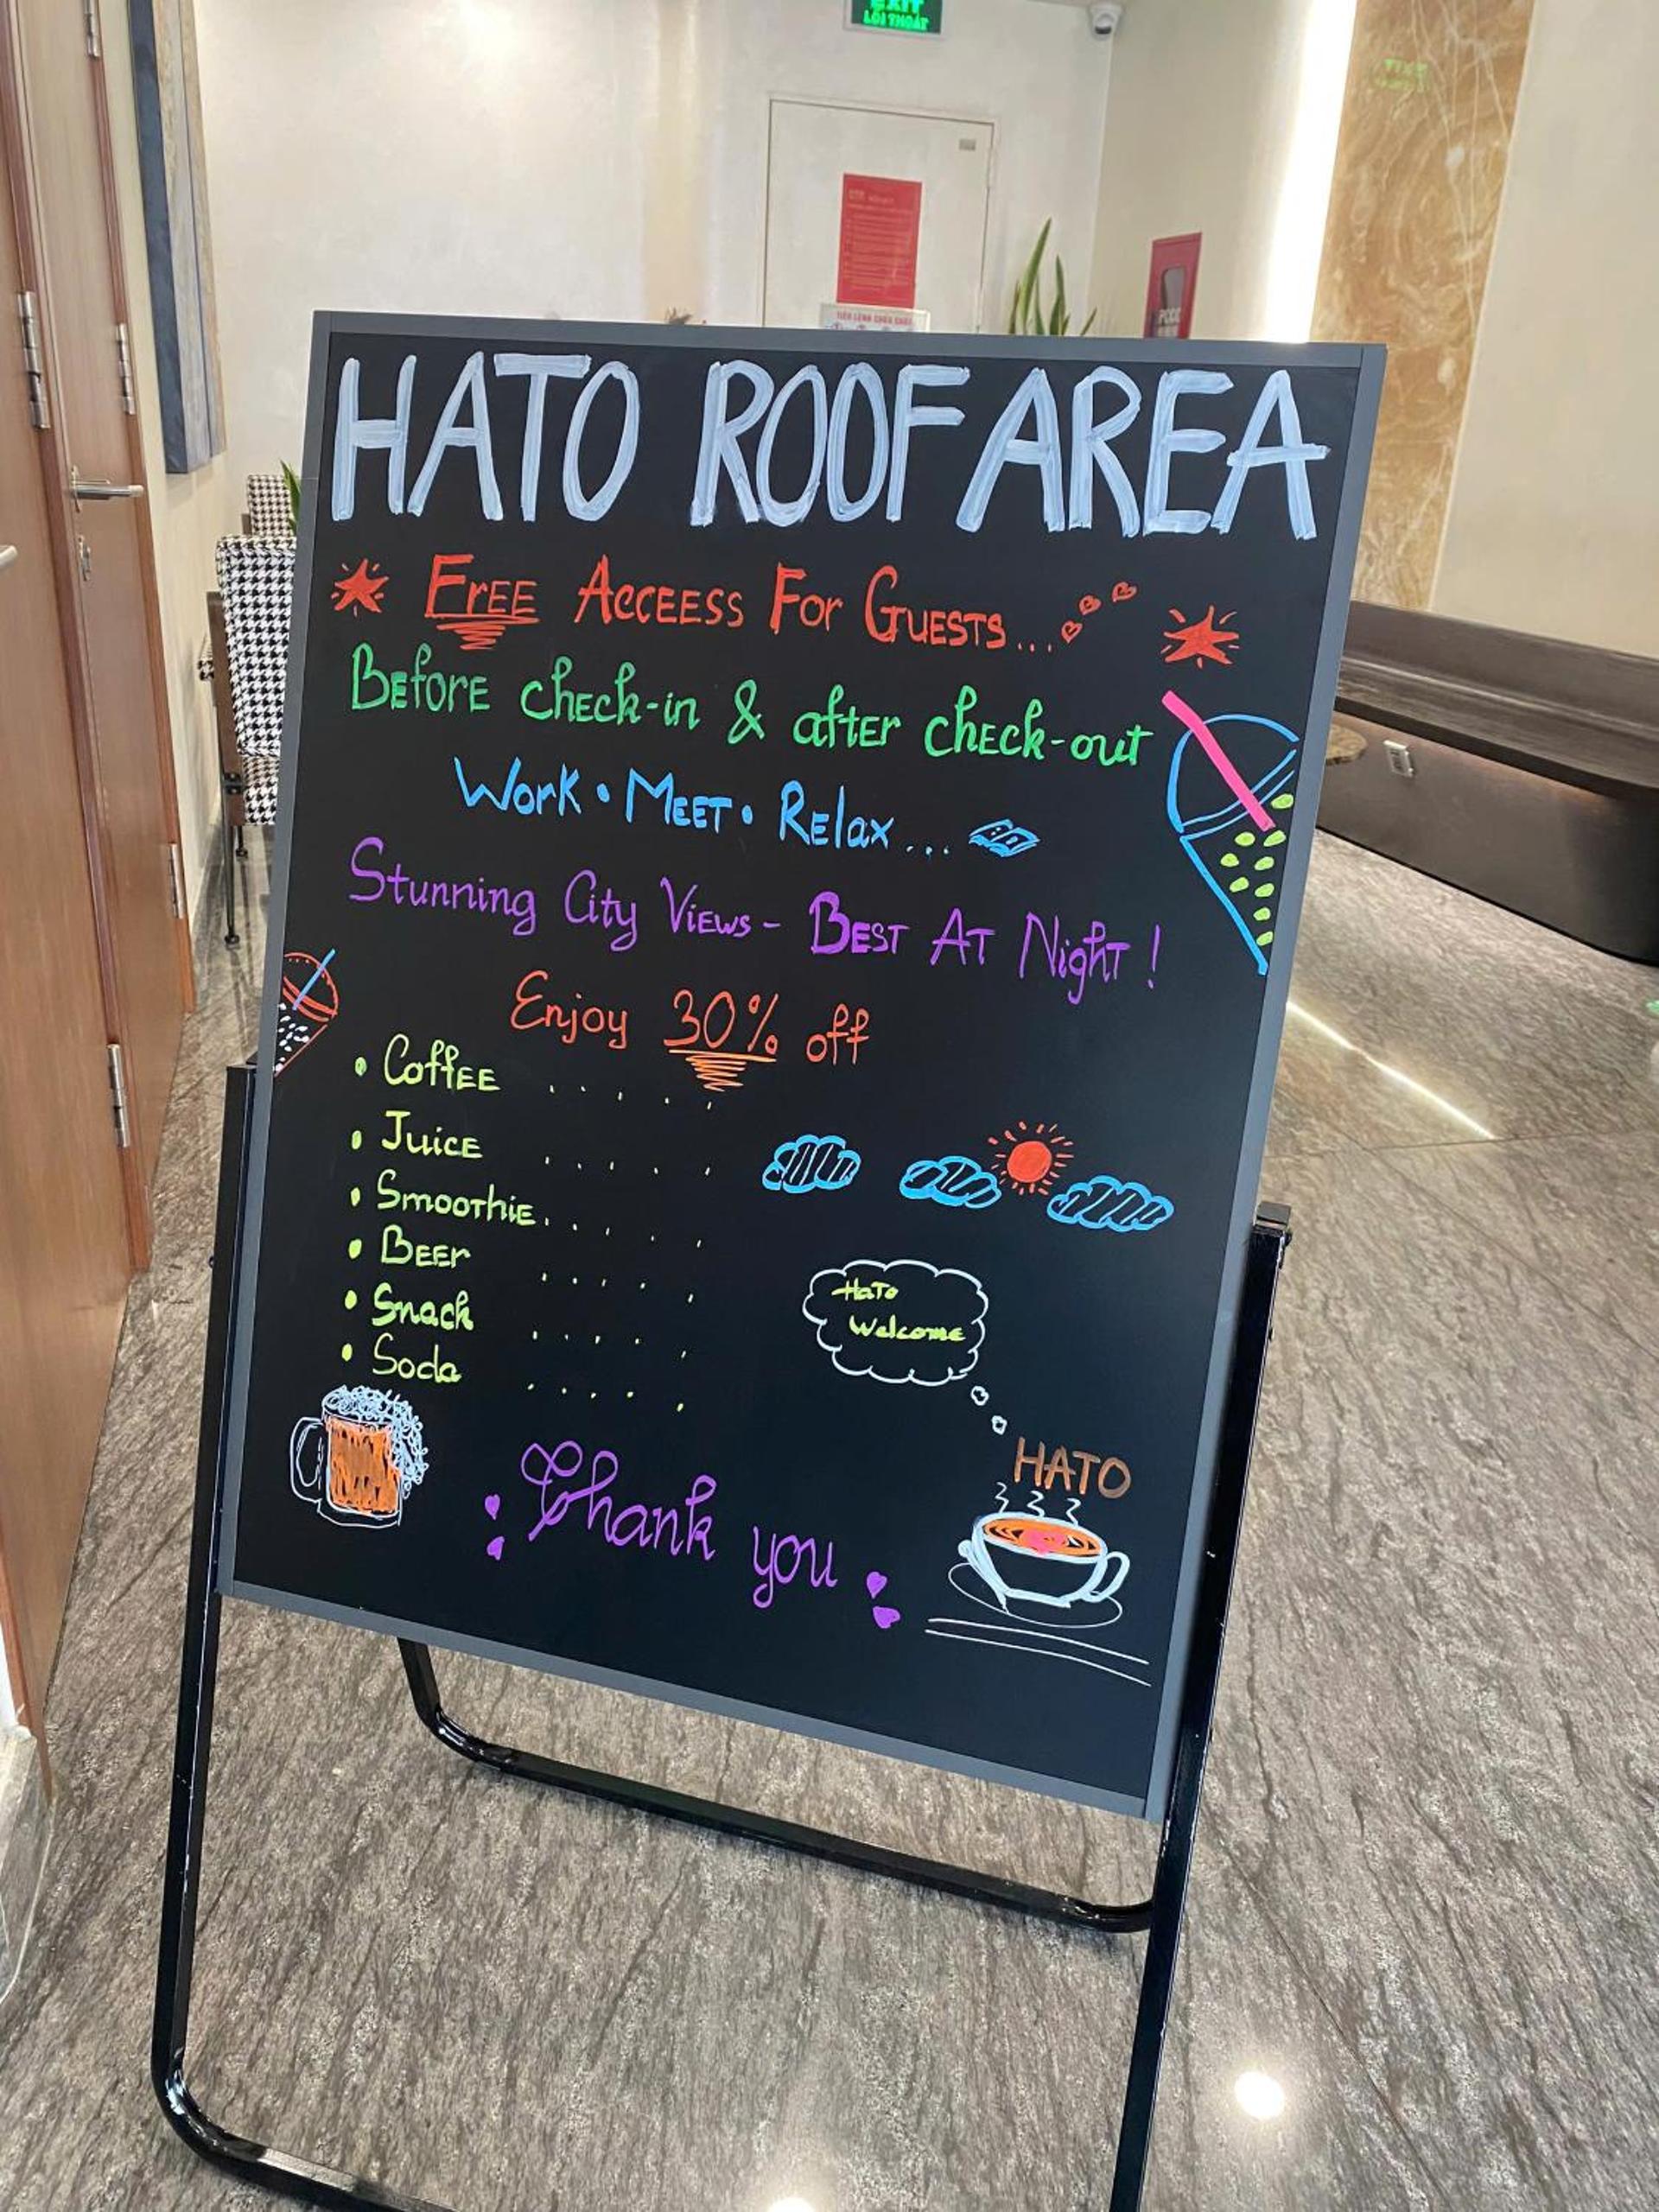 EXIT
LỐI THOÁT
PCCC
HATO ROOF AREA
FrEE ACCEESS FOr GUESTS...
BEforE chEck-in & aftEr chEck-out
Work • MEET • RElax...
Stunning City ViEws - BEST AT Night!
Enjoy 30% off
• CoffEE . . . . .
• JuicE . . . . .
• SmooThiE . . . . .
• BEEr . . . . .
• Snack . . . . .
• Soda . . . . .
HaTo
Welcome
HATO
Thank you